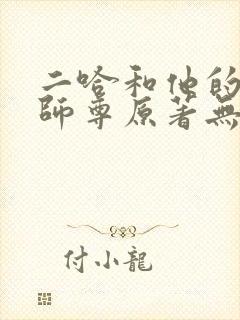 二哈和他的
師尊原著無
付小龍